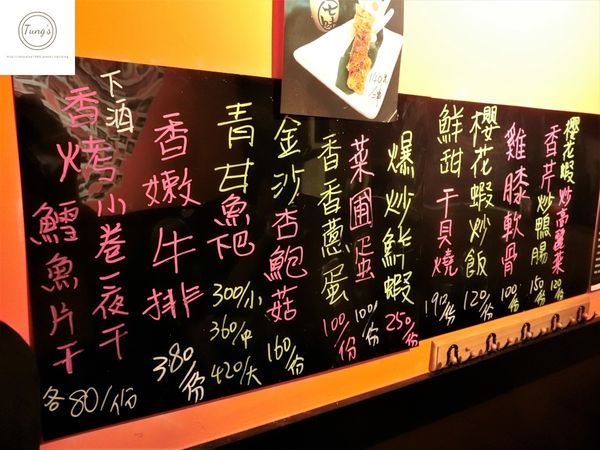 Tung's
七味
櫻花蝦炒高麗菜
120/份
香芹炒鴨腸
150/份
雞膝軟骨
100/份
櫻花蝦炒飯
120/份
鮮甜干貝燒
190/份
爆炒鮮蝦
250/份
菜圃蛋
100/份
香香蔥蛋
100/份
金沙杏鮑菇
160/份
青甘魚下巴
300/小
360/中
420/大
香嫩牛排
380/份
下酒
烤小卷一夜干
香烤鱈魚片干
各80/份